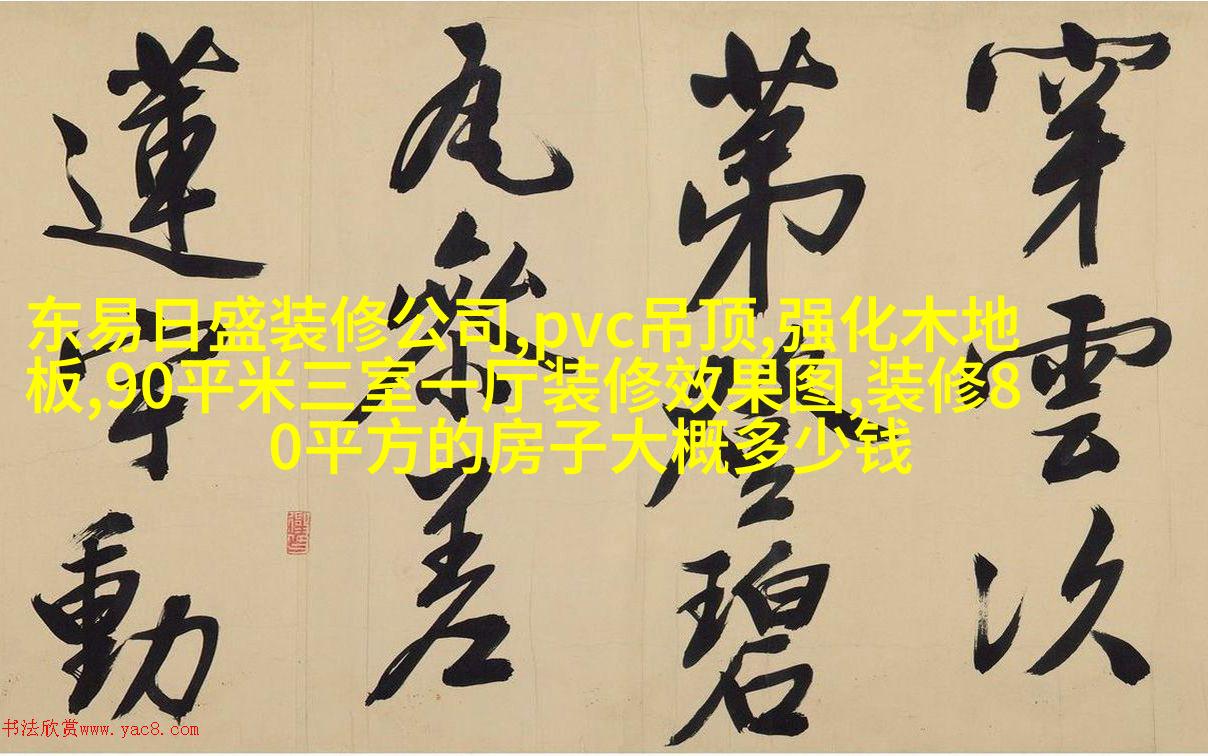 穿雲次
第碧
瓦參差
蓮宇動
东易日盛装修公司,pvc吊顶,强化木地
板,90平米三室一厅装修效果图,装修8
0平方的房子大概多少钱
书法欣赏www.yac8.com